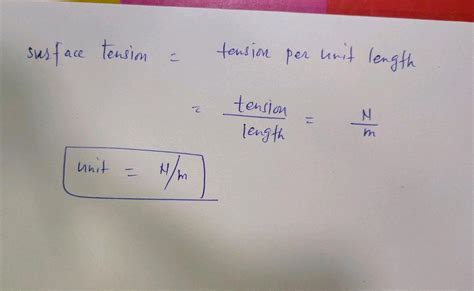 surface tension = tension per unit length
= tension/length = N/m
unit = N/m